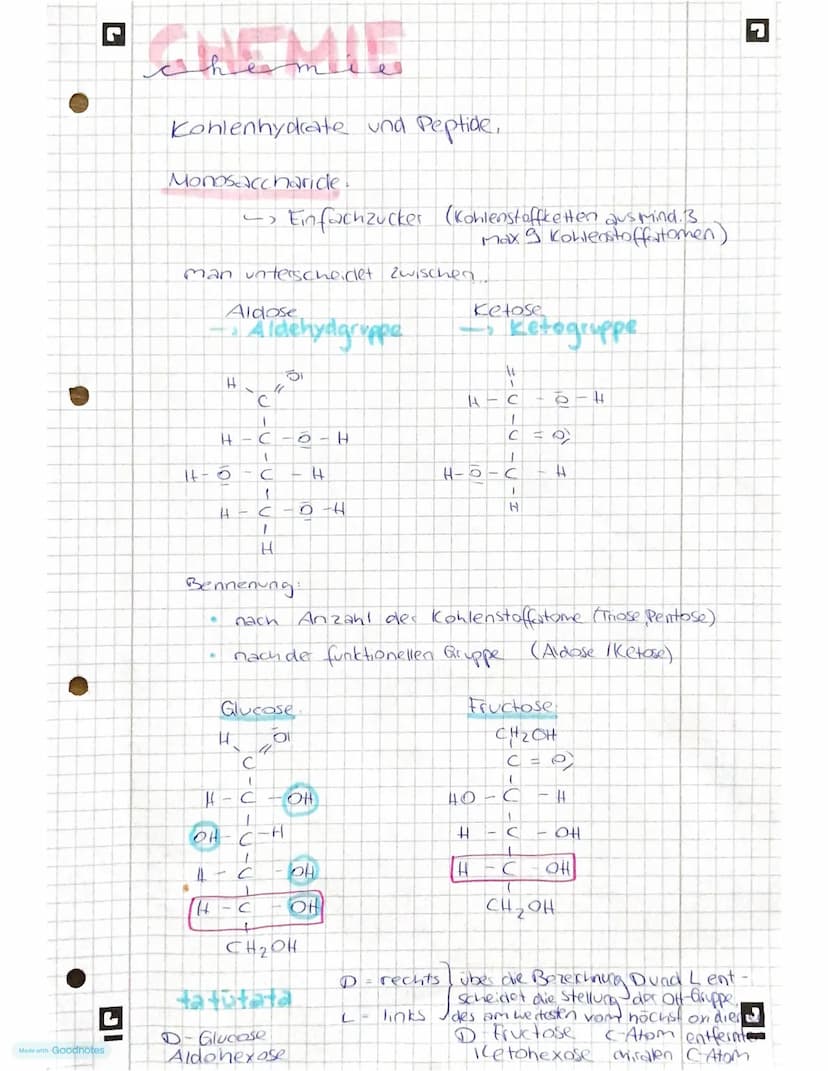 CHEMIE
chemie
Kohlenhydrate und Peptide.
Monosaccharide.
↳ Einfachzucker (Kohlenstoffketten aus mind. 3
max 9 Kohlenstoffatomen)
man unterscheidet zwischen..
Aldose Ketose
→ Aldehydgruppe → Ketogruppe
H O H
C H - C - O - H
H - C - O - H C = O
H - O - C - H H - O - C - H
H - C - O - H H
H
Bennenung:
• nach Anzahl der Kohlenstoffatome (Triose, Pentose)
• nach der funktionellen Gruppe (Aldose / Ketose)
Glucose. Fructose.
H O CH2OH
C C = O
H - C - OH HO - C - H
OH - C - H H - C - OH
H - C - OH H - C - OH
H - C - OH CH2OH
CH2OH
tatütata
D = rechts } über die Bezeichnung D und L ent-
scheidet die Stellung der OH-Gruppe
L = links des am weitesten vom höchst oxidier
D - Glucose D - Fructose C-Atom entfernten
Aldohexose Ketohexose chiralen C-Atom
Made with Goodnotes